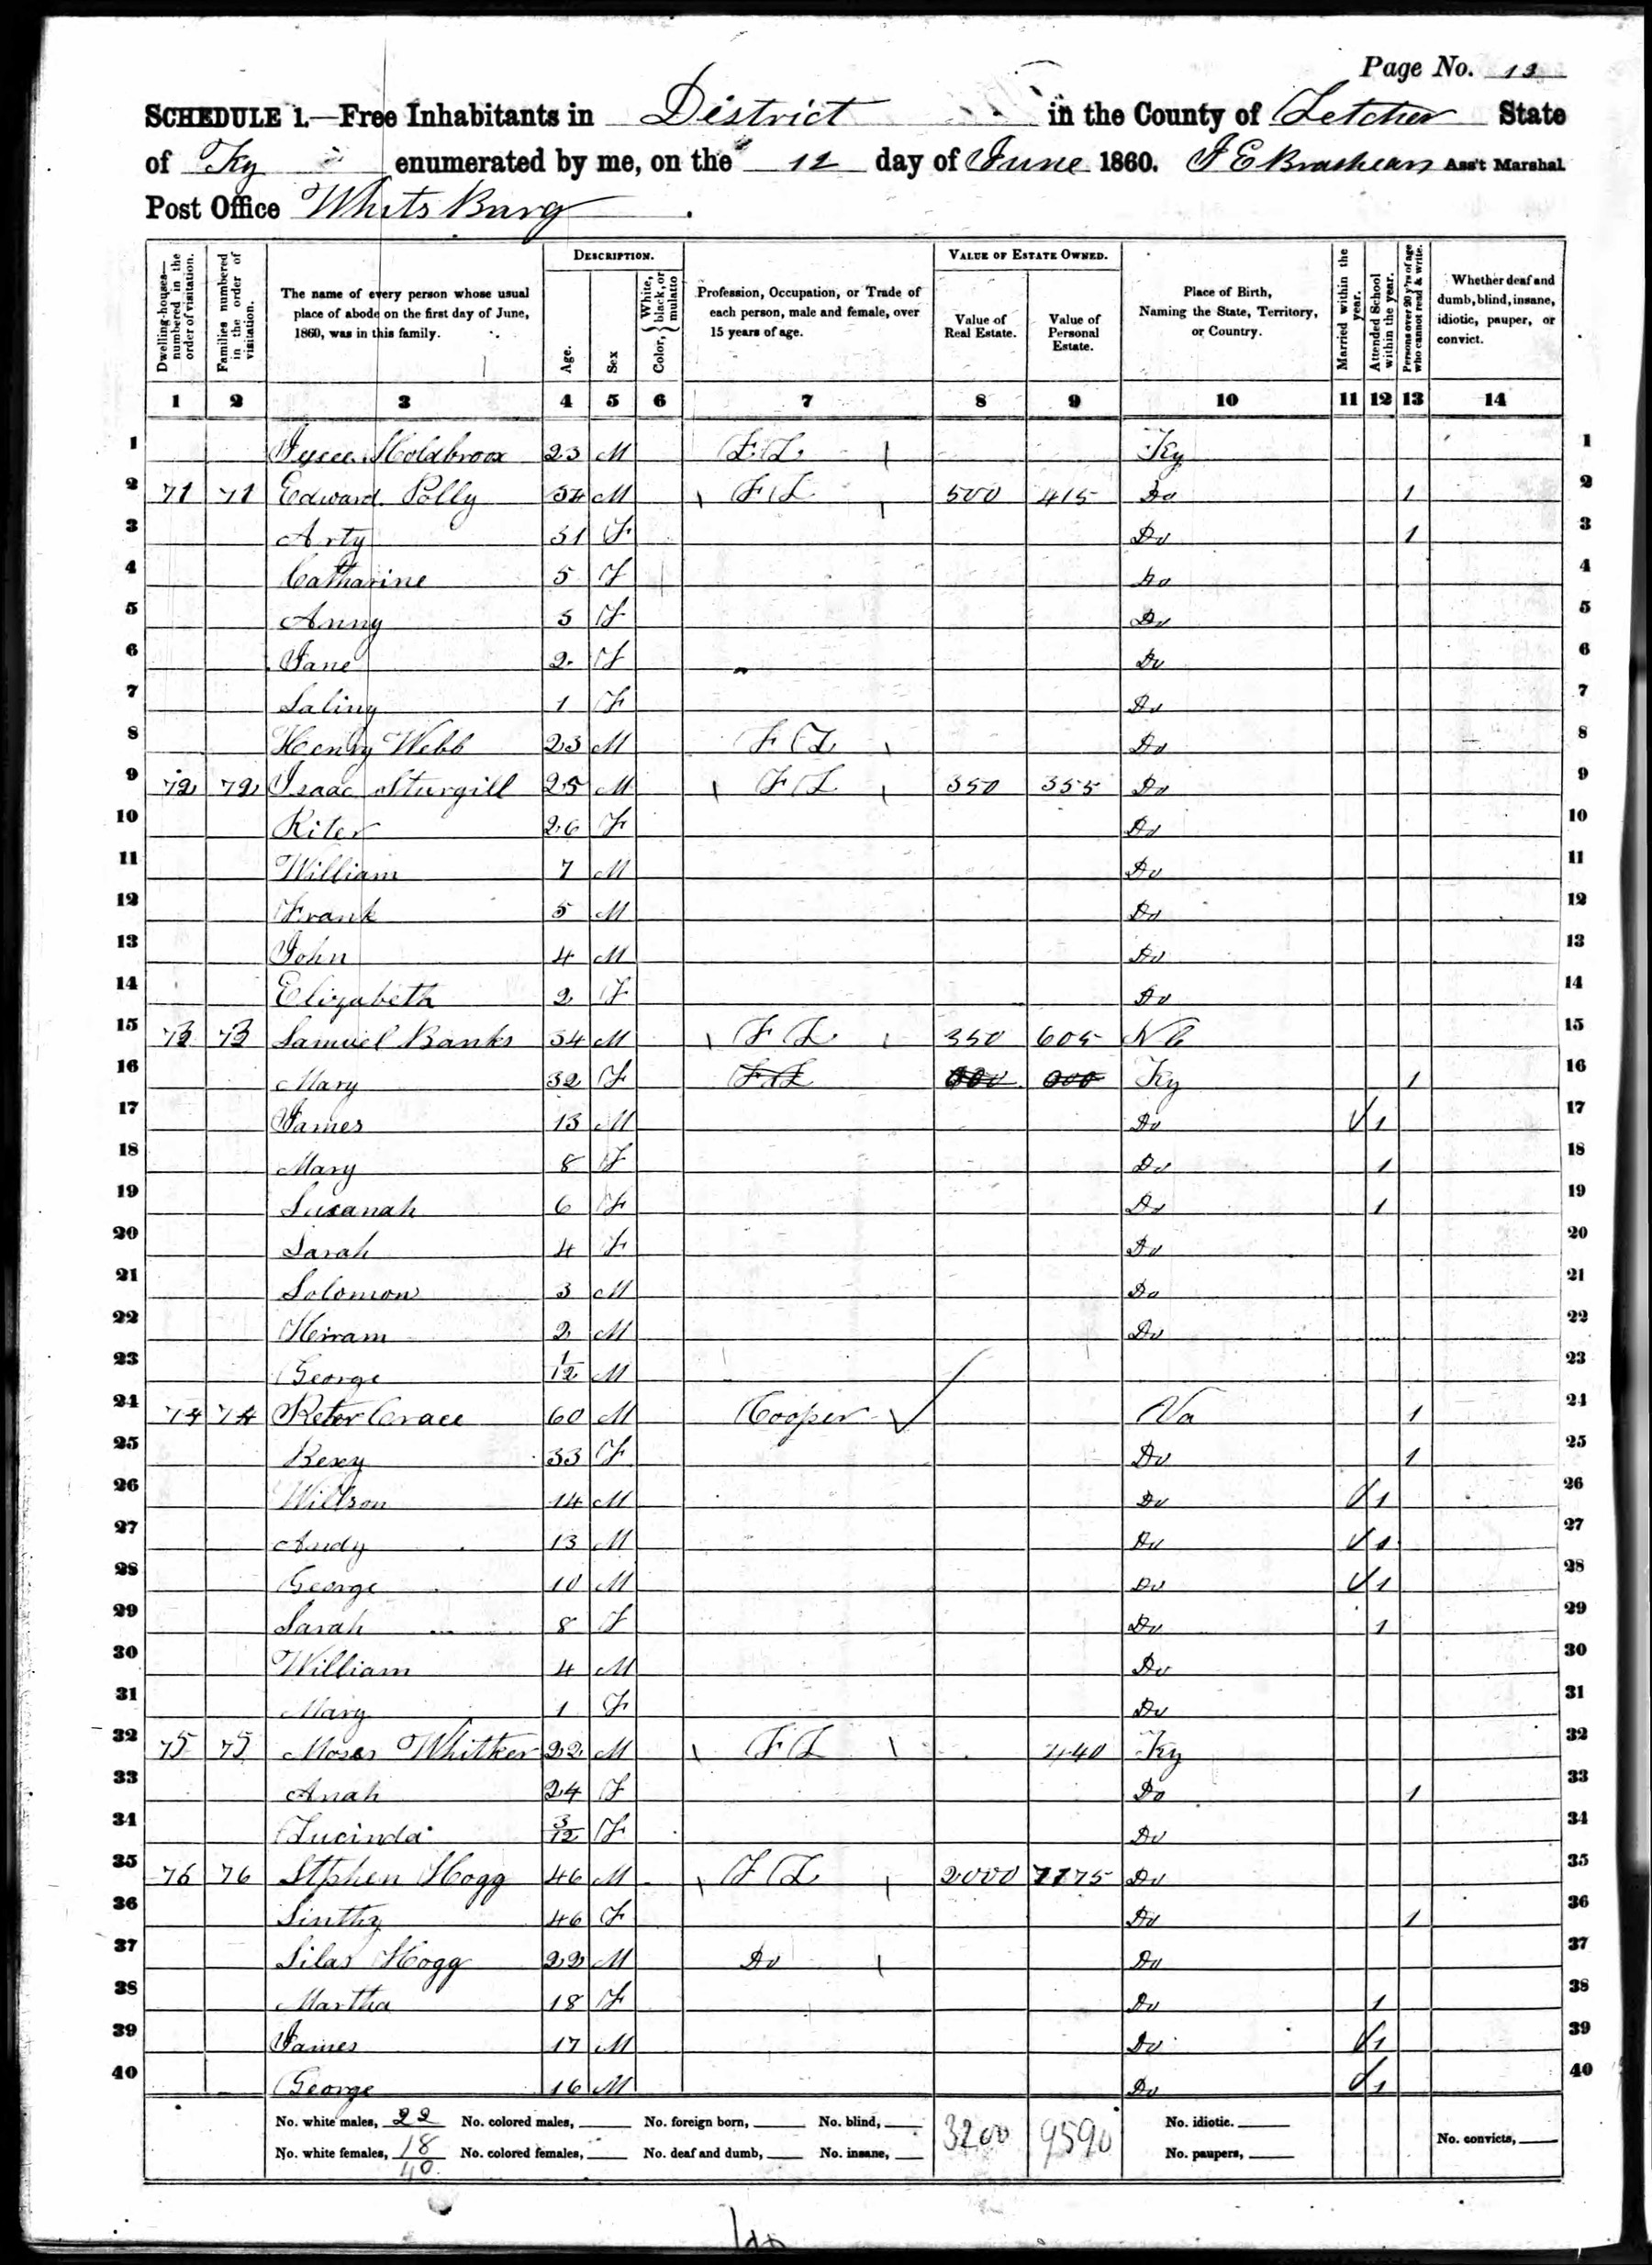 Page No. 13
SCHEDULE 1.—Free Inhabitants in District in the County of Letcher State
of Ky enumerated by me, on the 12 day of June 1860. Ass't Marshal
Post Office Whits Burg
Dwelling-houses— numbered in the order of visitation.
Families numbered in the order of visitation.
The name of every person whose usual place of abode on the first day of June, 1860, was in this family.
DESCRIPTION.
Age.
Sex
Color, { White, black, or mulatto
Profession, Occupation, or Trade of each person, male and female, over 15 years of age.
VALUE OF ESTATE OWNED.
Value of Real Estate.
Value of Personal Estate.
Place of Birth, Naming the State, Territory, or Country.
Married within the year.
Attended School within the year.
Persons over 20 y'rs of age who cannot read & write.
Whether deaf and dumb, blind, insane, idiotic, pauper, or convict.
1 2 3 4 5 6 7 8 9 10 11 12 13 14
1 Holdbroox 23 M F.L. Ky 1
2 71 71 Edward Polly 34 M F L 500 415 Do 1 2
3 Arty 31 F Do 1 3
4 Catharine 5 F Do 4
5 Anny 3 F Do 5
6 Jane 2 F Do 6
7 Saliny 1 F Do 7
8 Henry Webb 23 M F L Do 8
9 72 72 Isaac Sturgill 25 M F L 350 355 Do 9
10 Riter 26 F Do 10
11 William 7 M Do 11
12 Frank 5 M Do 12
13 John 4 M Do 13
14 Elizabeth 2 F Do 14
15 73 73 Samuel Banks 34 M F L 350 605 N C 15
16 Mary 32 F F L Ky 1 16
17 James 13 M Do √ 1 17
18 Mary 8 F Do 1 18
19 Susanah 6 F Do 1 19
20 Sarah 4 F Do 20
21 Solomon 3 M Do 21
22 Hirram 2 M Do 22
23 George 1/12 M 23
24 74 74 Peter Crace 60 M Cooper √ Va 1 24
25 Bexy 33 F Do 1 25
26 Willson 14 M Do √ 1 26
27 Andy 13 M Do √ 1 27
28 George 10 M Do √ 1 28
29 Sarah 8 F Do 1 29
30 William 4 M Do 30
31 Mary 1 F Do 31
32 75 75 Moses Whitker 22 M F L 440 Ky 32
33 Anah 24 F Do 1 33
34 Lucinda 3/12 F Do 34
35 76 76 Stphen Hogg 46 M F L 2000 7175 Do 35
36 Sinthy 46 F Do 1 36
37 Silas Hogg 22 M Do Do 37
38 Martha 18 F Do 1 38
39 James 17 M Do √ 1 39
40 George 16 M Do √ 1 40
No. white males, 22 No. colored males, No. foreign born, No. blind, 3200 9590 No. idiotic.
No. white females, 18 No. colored females, No. deaf and dumb, No. insane, No. paupers, No. convicts,
40